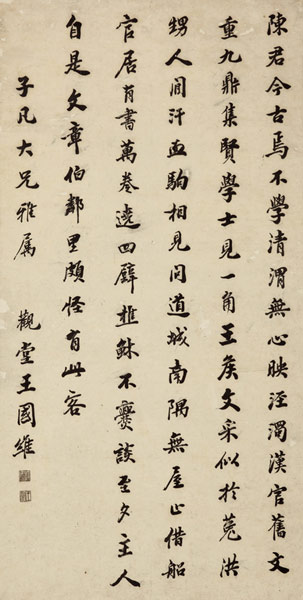 陳君今古焉不學清渭無心映涇濁漢官舊文
重九鼎集賢學士見一角王矦文采似於菟洪
甥人間汗血駒相見問道城南隅無屋止借船
官居有書萬卷遶四壁樵穌不爨談至夕主人
自是文章伯鄰里頗怪有此客
子凡大兄雅屬
觀堂王國維